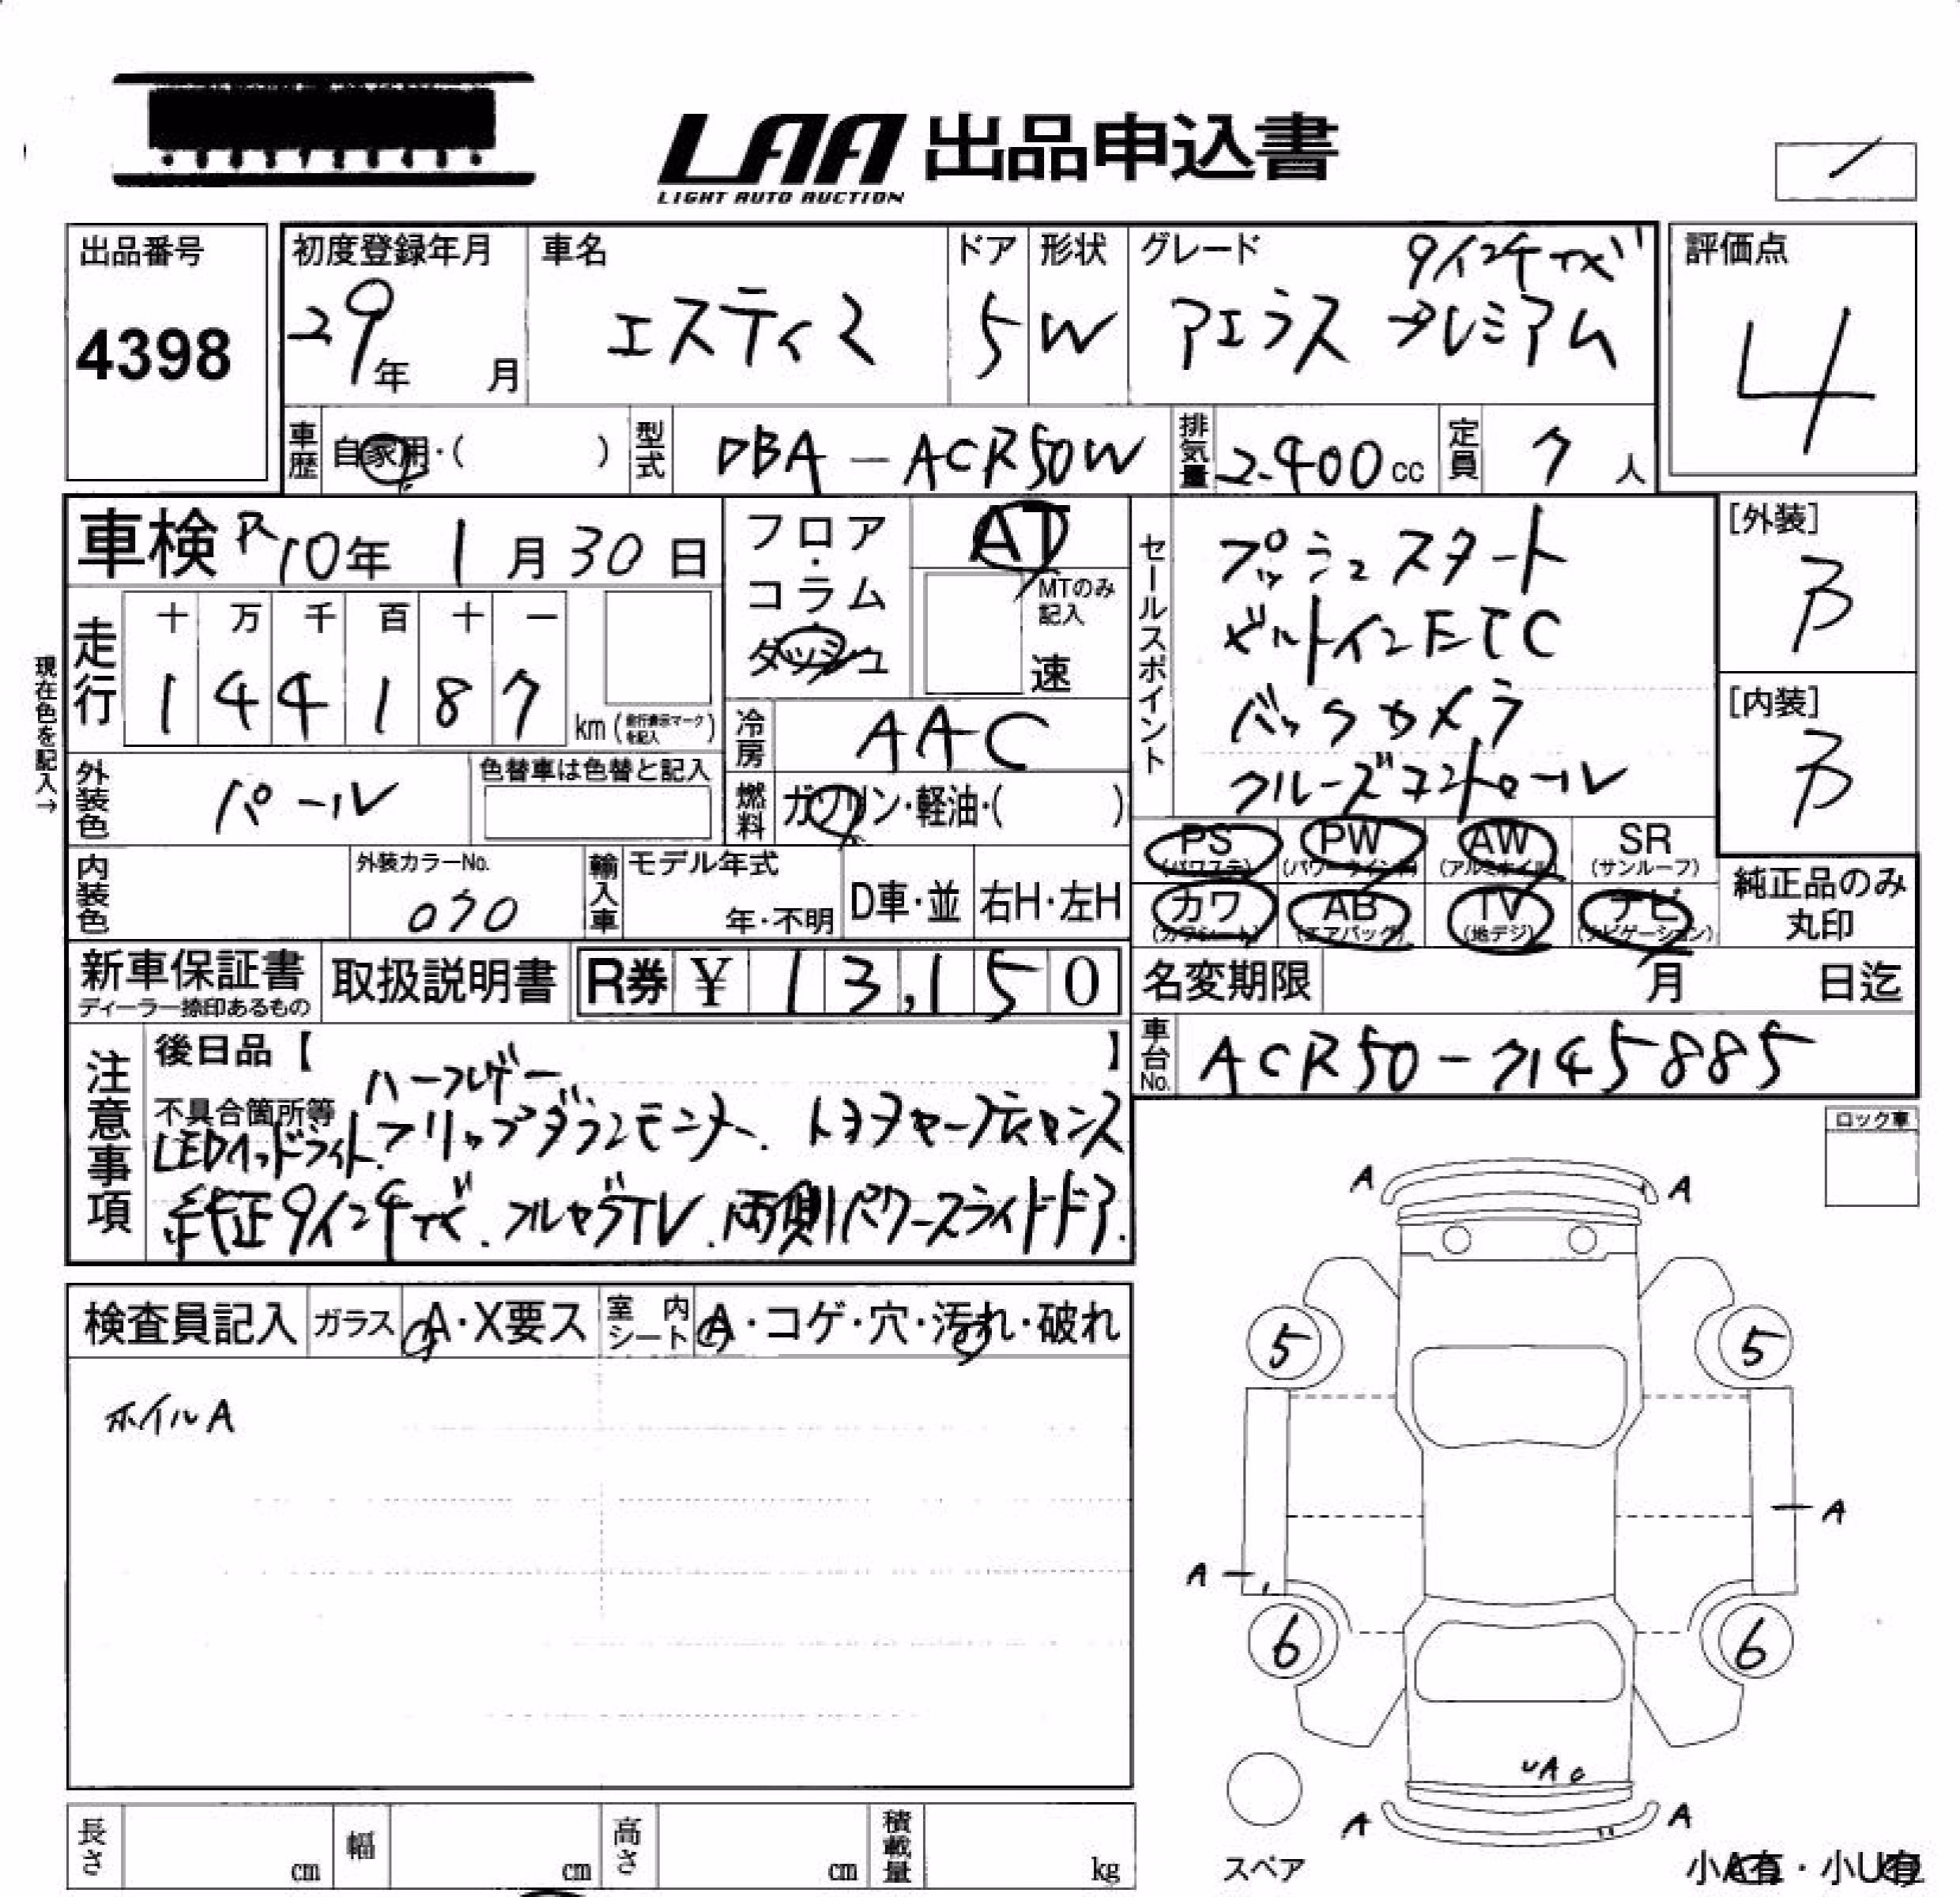 LAA 出品申込書
LIGHT AUTO AUCTION
出品番号
4398
初度登録年月
29年 月
車名
エスティマ
ドア
5
形状
W
グレード
9インチナビ
アエラス プレミアム
評価点
4
車歴
自家用・( )
型式
DBA-ACR50W
排気量
2400cc
定員
7人
車検 R10年 1月30日
フロア・コラム
ダッシュ
AT
MTのみ記入
速
セールスポイント
プッシュスタート
ビルトインETC
バックカメラ
クルーズコントロール
[外装]
B
[内装]
B
現在色を記入→
走行
十 万 千 百 十 一
1 4 4 1 8 7
km(走行表示マークを記入)
冷房
AAC
外装色
パール
色替車は色替と記入
燃料
ガソリン・軽油・( )
PS
(パワステ)
PW
(パワーウインド)
AW
(アルミホイル)
SR
(サンルーフ)
カワ
(カワシート)
AB
(エアバッグ)
TV
(地デジ)
ナビ
(ナビゲーション)
純正品のみ
丸印
内装色
外装カラーNo.
070
輸入車
モデル年式
年・不明
D車・並
右H・左H
新車保証書
ディーラー捺印あるもの
取扱説明書
R券 ¥ 13,150
名変期限
月 日迄
車台No.
ACR50-7145885
注意事項
後日品【 】
不具合箇所等
ハーフレザー
LEDヘッドライト.フリップダウンモニター. トヨタセーフティセンス
純正9インチナビ.フルセグTV.両側パワースライドドア.
ロック車
検査員記入
ガラス
A・X要ス
室内シート
A・コゲ・穴・汚れ・破れ
ホイルA
A A
5 5
A
A
6 6
UA
A A
スペア
小A有・小U有
長さ
cm
幅
cm
高さ
cm
積載量
kg